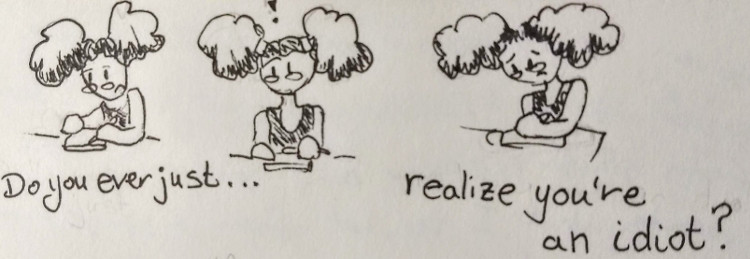 !
Do you ever just...
realize you're
an idiot?